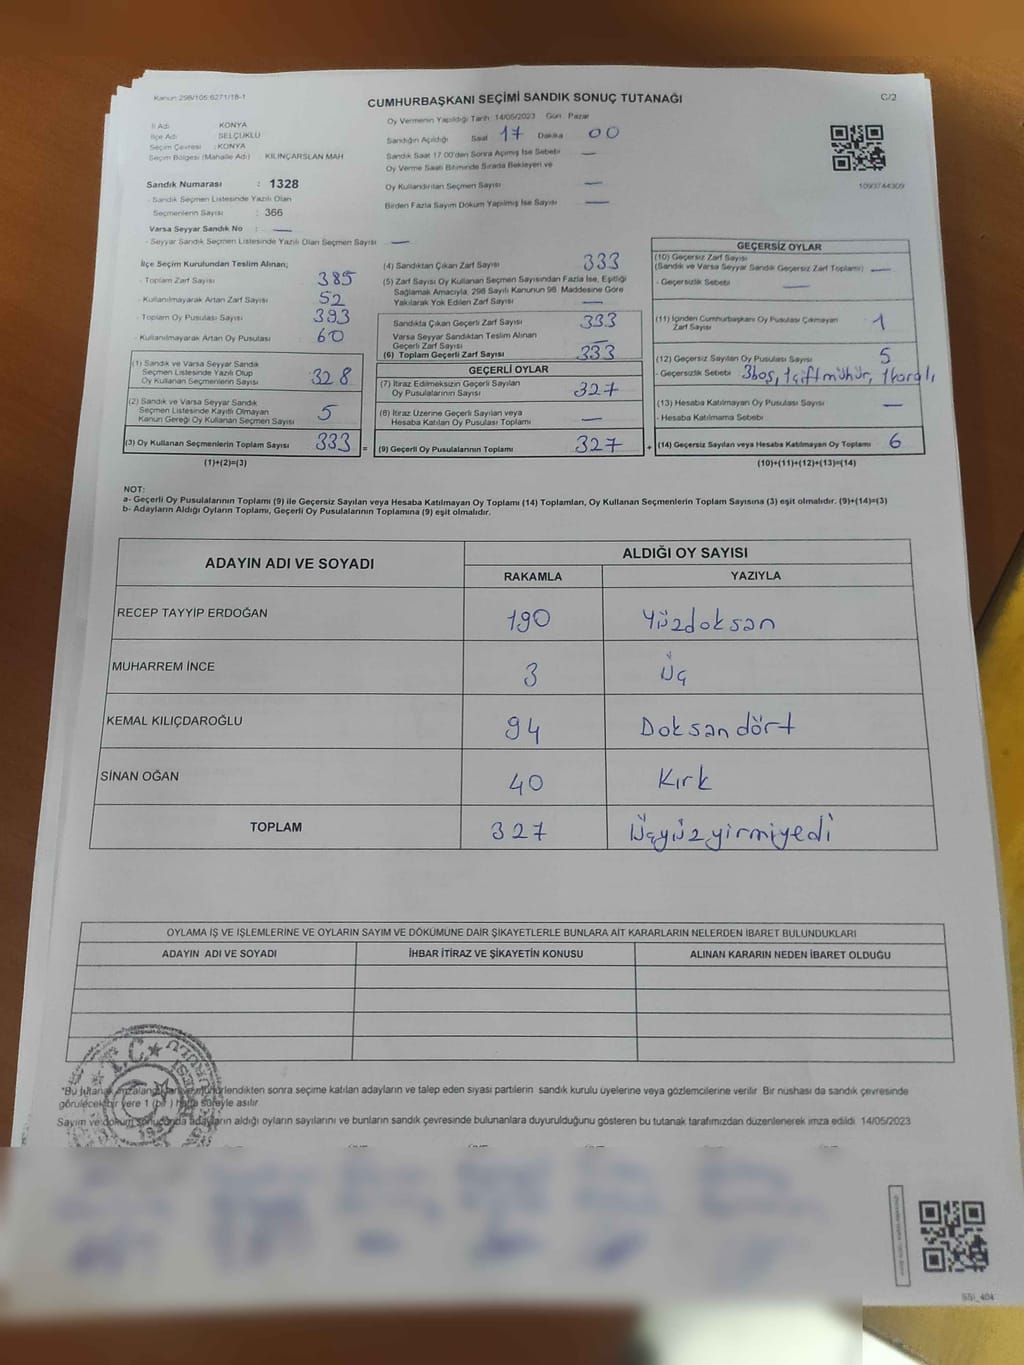 Kanun 298/105;6271/18-1
CUMHURBAŞKANI SEÇİMİ SANDIK SONUÇ TUTANAĞI
C/2
İl Adı : KONYA
İlçe Adı : SELÇUKLU
Seçim Çevresi : KONYA
Seçim Bölgesi (Mahalle Adı) : KILINÇARSLAN MAH
Sandık Numarası : 1328
- Sandık Seçmen Listesinde Yazılı Olan
Seçmenlerin Sayısı : 366
Varsa Seyyar Sandık No : —
- Seyyar Sandık Seçmen Listesinde Yazılı Olan Seçmen Sayısı —
Oy Vermenin Yapıldığı Tarih :14/05/2023 Gün Pazar
Sandığın Açıldığı Saat 17 Dakika 00
Sandık Saat 17.00'den Sonra Açılmış İse Sebebi —
Oy Verme Saati Bitiminde Sırada Bekleyen ve
Oy Kullandırılan Seçmen Sayısı —
Birden Fazla Sayım Döküm Yapılmış İse Sayısı —
1093744309
İlçe Seçim Kurulundan Teslim Alınan;
- Toplam Zarf Sayısı 385
- Kullanılmayarak Artan Zarf Sayısı 52
- Toplam Oy Pusulası Sayısı 393
- Kullanılmayarak Artan Oy Pusulası 60
(1) Sandık ve Varsa Seyyar Sandık
Seçmen Listesinde Yazılı Olup
Oy Kullanan Seçmenlerin Sayısı 328
(2) Sandık ve Varsa Seyyar Sandık
Seçmen Listesinde Kayıtlı Olmayan
Kanun Gereği Oy Kullanan Seçmen Sayısı 5
(3) Oy Kullanan Seçmenlerin Toplam Sayısı 333 =
(1)+(2)=(3)
(4) Sandıktan Çıkan Zarf Sayısı 333
(5) Zarf Sayısı Oy Kullanan Seçmen Sayısından Fazla İse, Eşitliği
Sağlamak Amacıyla, 298 Sayılı Kanunun 98. Maddesine Göre
Yakılarak Yok Edilen Zarf Sayısı —
Sandıkta Çıkan Geçerli Zarf Sayısı 333
Varsa Seyyar Sandıktan Teslim Alınan
Geçerli Zarf Sayısı —
(6) Toplam Geçerli Zarf Sayısı 333
GEÇERLİ OYLAR
(7) İtiraz Edilmeksizin Geçerli Sayılan
Oy Pusulalarının Sayısı 327
(8) İtiraz Üzerine Geçerli Sayılan veya
Hesaba Katılan Oy Pusulası Toplamı —
(9) Geçerli Oy Pusulalarının Toplamı 327 +
GEÇERSİZ OYLAR
(10) Geçersiz Zarf Sayısı
(Sandık ve Varsa Seyyar Sandık Geçersiz Zarf Toplamı) —
- Geçersizlik Sebebi —
(11) İçinden Cumhurbaşkanı Oy Pusulası Çıkmayan
Zarf Sayısı 1
(12) Geçersiz Sayılan Oy Pusulası Sayısı 5
- Geçersizlik Sebebi 3boş, 1çiftmühür, 1karalı,
(13) Hesaba Katılmayan Oy Pusulası Sayısı —
- Hesaba Katılmama Sebebi
(14) Geçersiz Sayılan veya Hesaba Katılmayan Oy Toplamı 6
(10)+(11)+(12)+(13)=(14)
NOT:
a- Geçerli Oy Pusulalarının Toplamı (9) ile Geçersiz Sayılan veya Hesaba Katılmayan Oy Toplamı (14) Toplamları, Oy Kullanan Seçmenlerin Toplam Sayısına (3) eşit olmalıdır. (9)+(14)=(3)
b- Adayların Aldığı Oyların Toplamı, Geçerli Oy Pusulalarının Toplamına (9) eşit olmalıdır.
ADAYIN ADI VE SOYADI
ALDIĞI OY SAYISI
RAKAMLA YAZIYLA
RECEP TAYYİP ERDOĞAN 190 Yüzdoksan
MUHARREM İNCE 3 Üç
KEMAL KILIÇDAROĞLU 94 Doksandört
SİNAN OĞAN 40 Kırk
TOPLAM 327 Üçyüzyirmiyedi
OYLAMA İŞ VE İŞLEMLERİNE VE OYLARIN SAYIM VE DÖKÜMÜNE DAİR ŞİKAYETLERLE BUNLARA AİT KARARLARIN NELERDEN İBARET BULUNDUKLARI
ADAYIN ADI VE SOYADI İHBAR İTİRAZ VE ŞİKAYETİN KONUSU ALINAN KARARIN NEDEN İBARET OLDUĞU
T.C.
*Bu tutanak sonra seçime katılan adayların ve talep eden siyasi partilerin sandık kurulu üyelerine veya gözlemcilerine verilir. Bir nüshası da sandık çevresinde
görülecek bir yere 1 (bir) hafta süreyle asılır.
Sayım ve döküm sonucunda adayların aldığı oyların sayılarını ve bunların sandık çevresinde bulunanlara duyurulduğunu gösteren bu tutanak tarafımızdan düzenlenerek imza edildi. 14/05/2023
SSİ_404